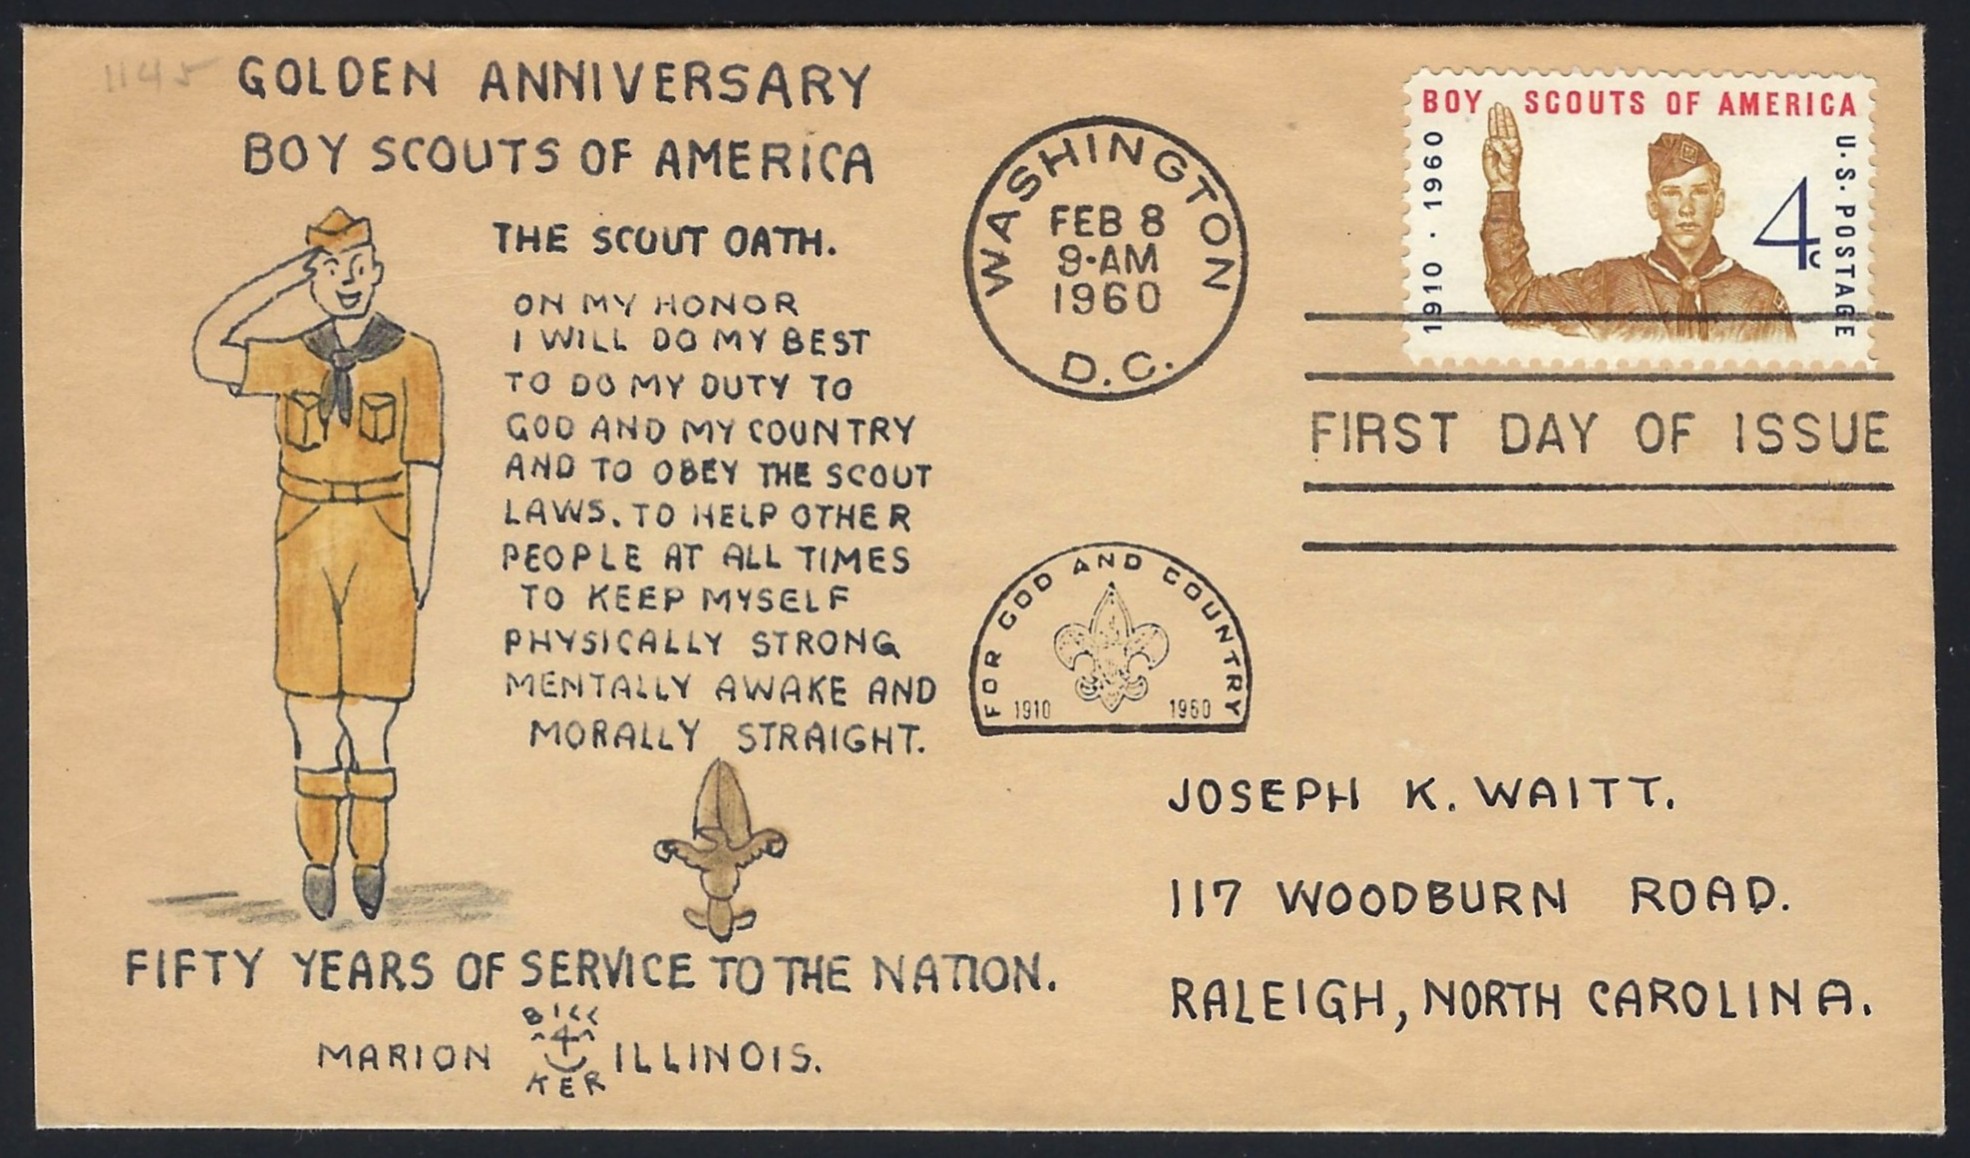 1145
GOLDEN ANNIVERSARY
BOY SCOUTS OF AMERICA
THE SCOUT OATH.
ON MY HONOR
I WILL DO MY BEST
TO DO MY DUTY TO
GOD AND MY COUNTRY
AND TO OBEY THE SCOUT
LAWS. TO HELP OTHER
PEOPLE AT ALL TIMES
TO KEEP MYSELF
PHYSICALLY STRONG
MENTALLY AWAKE AND
MORALLY STRAIGHT.
FIFTY YEARS OF SERVICE TO THE NATION.
MARION ILLINOIS.
KER
WASHINGTON
FEB 8
9-AM
1960
D.C.
FOR GOD AND COUNTRY
1910 1960
BOY SCOUTS OF AMERICA
1910 · 1960
4c
U.S. POSTAGE
FIRST DAY OF ISSUE
JOSEPH K. WAITT.
117 WOODBURN ROAD.
RALEIGH, NORTH CAROLINA.